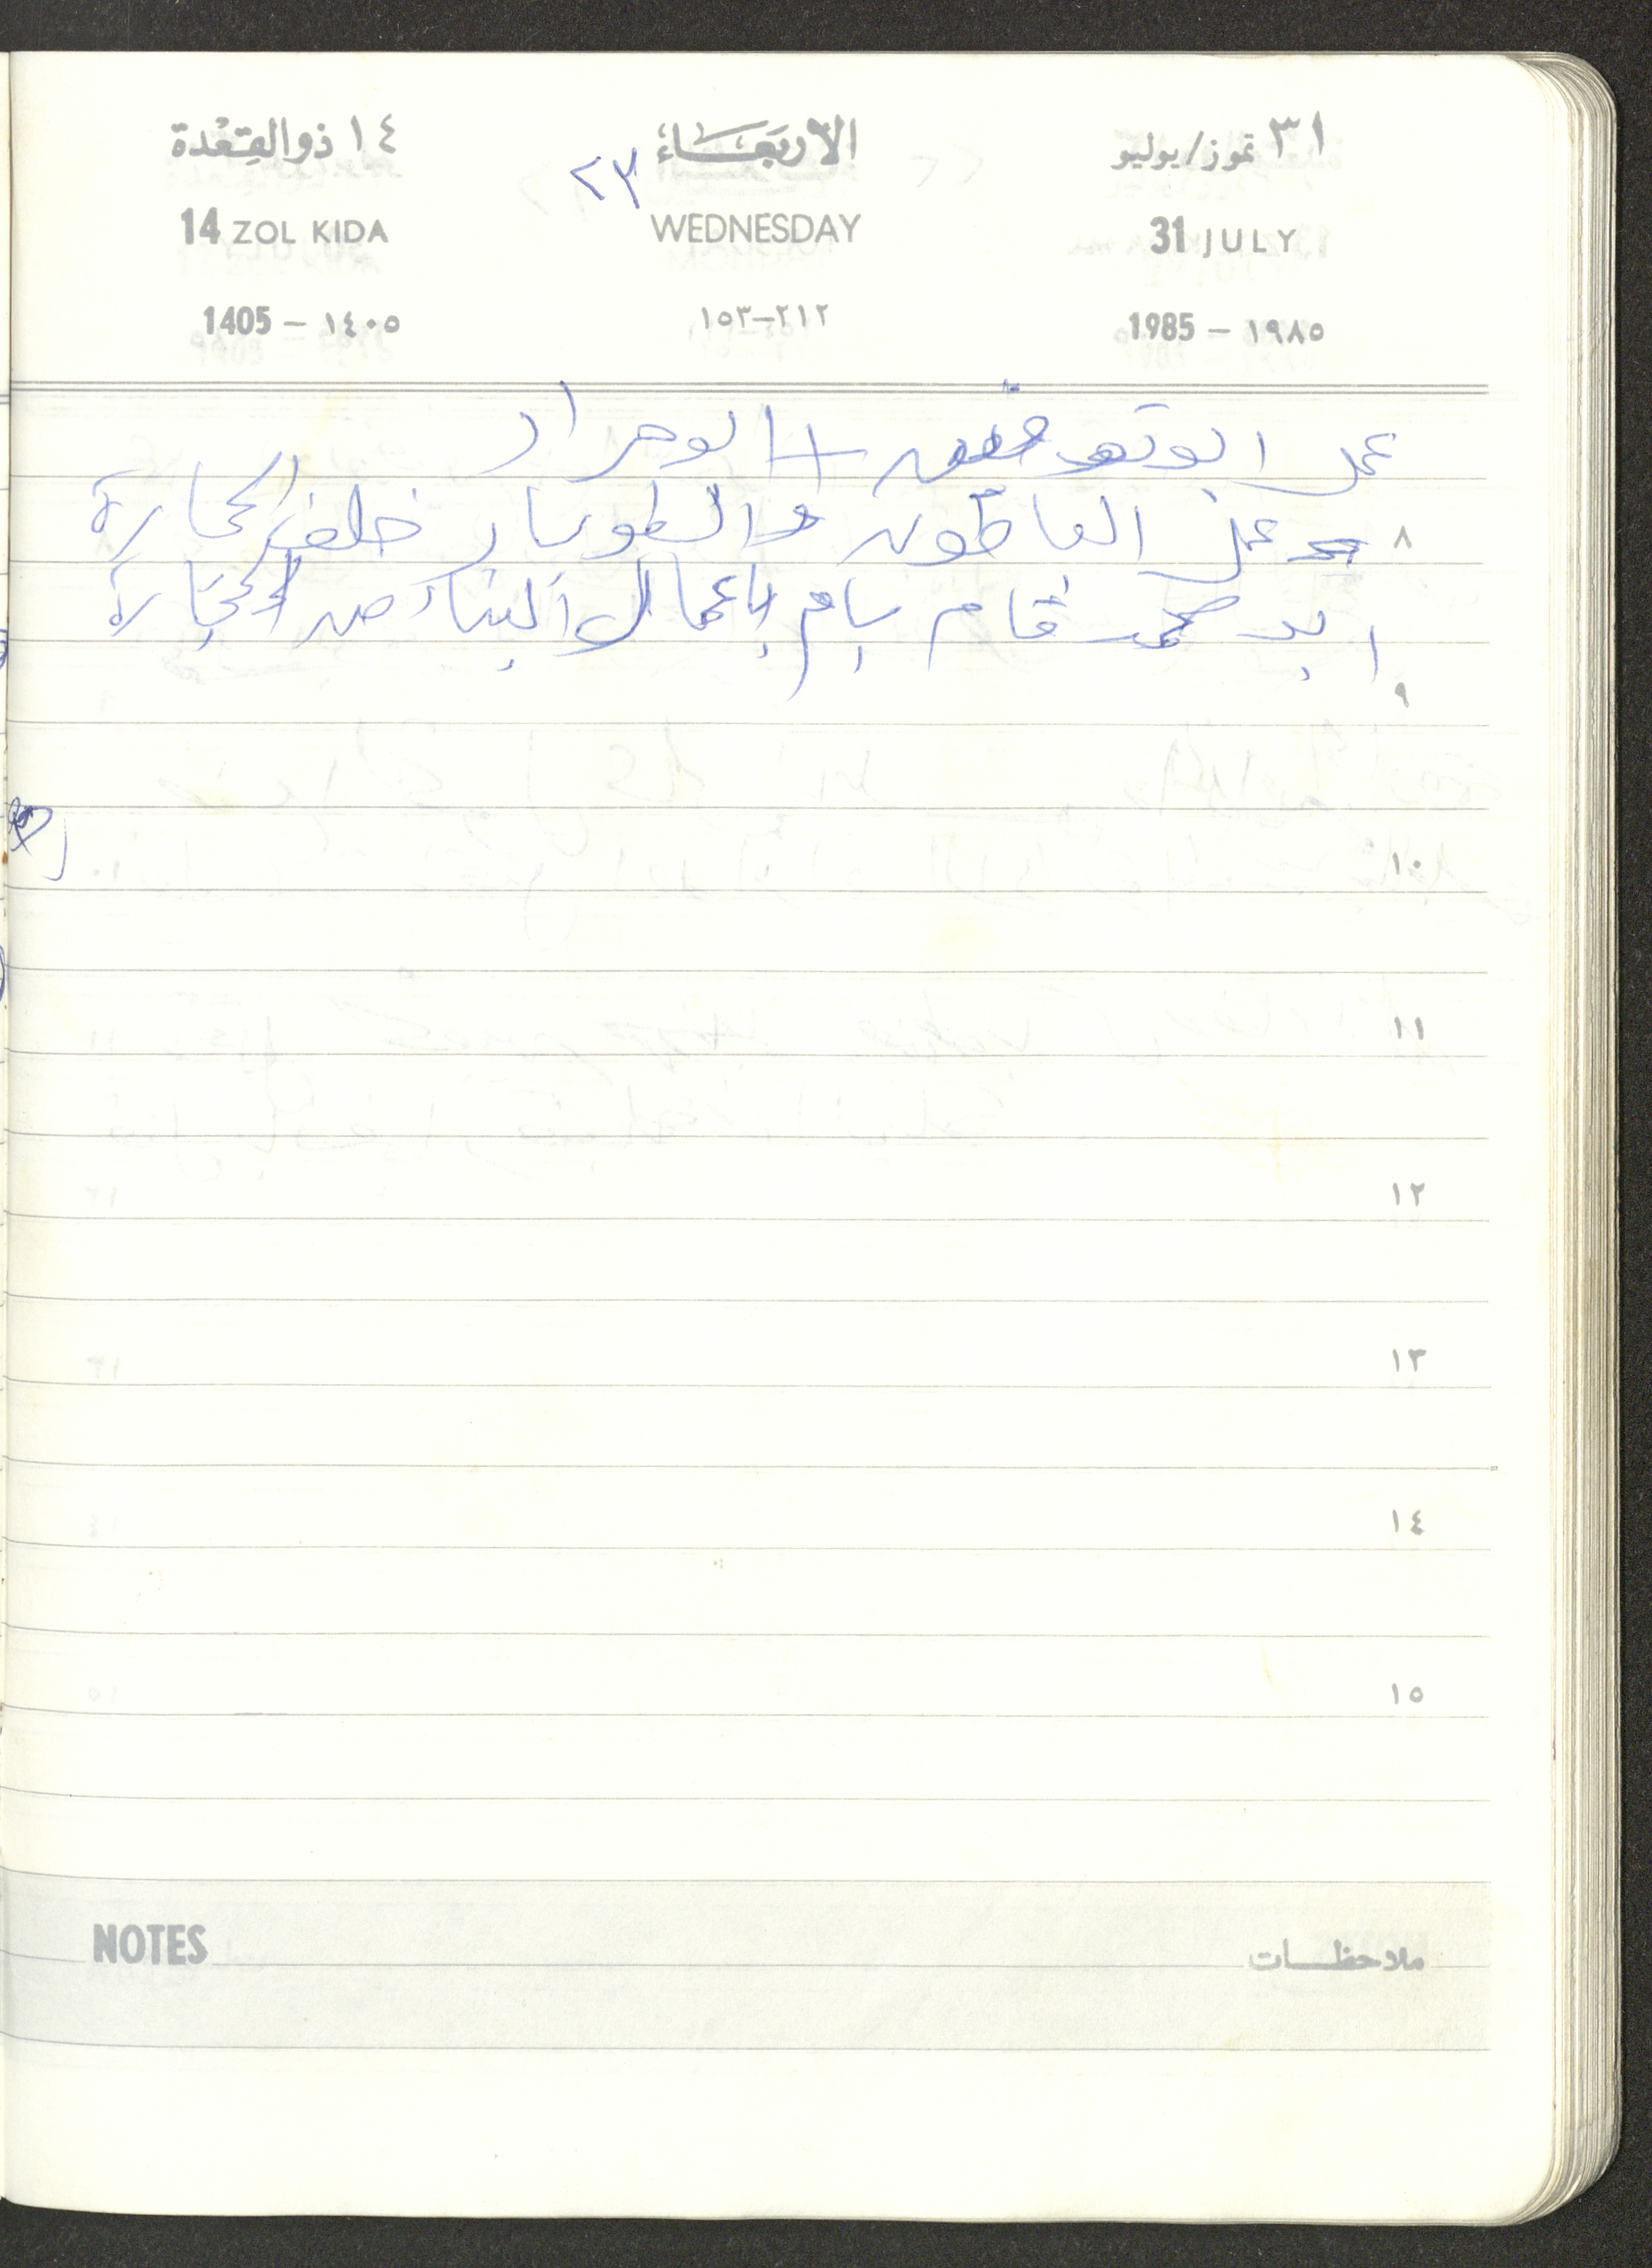 ٣١ تموز/يوليو الأربعاء ١٤ ذوالقعدة
٢٣
31 JULY WEDNESDAY 14 ZOL KIDA
1985 – ١٩٨٥ ٢١٢–١٥٣ 1405 – ١٤٠٥
عمل ابو توفيق + ابو مراد
٨ عمل الباطون والطوبار خلف الحجارة
ابو محمد قام باعمال البناء من الحجارة
٩
١٠
١١
١٢
١٣
١٤
١٥
ملاحظات NOTES